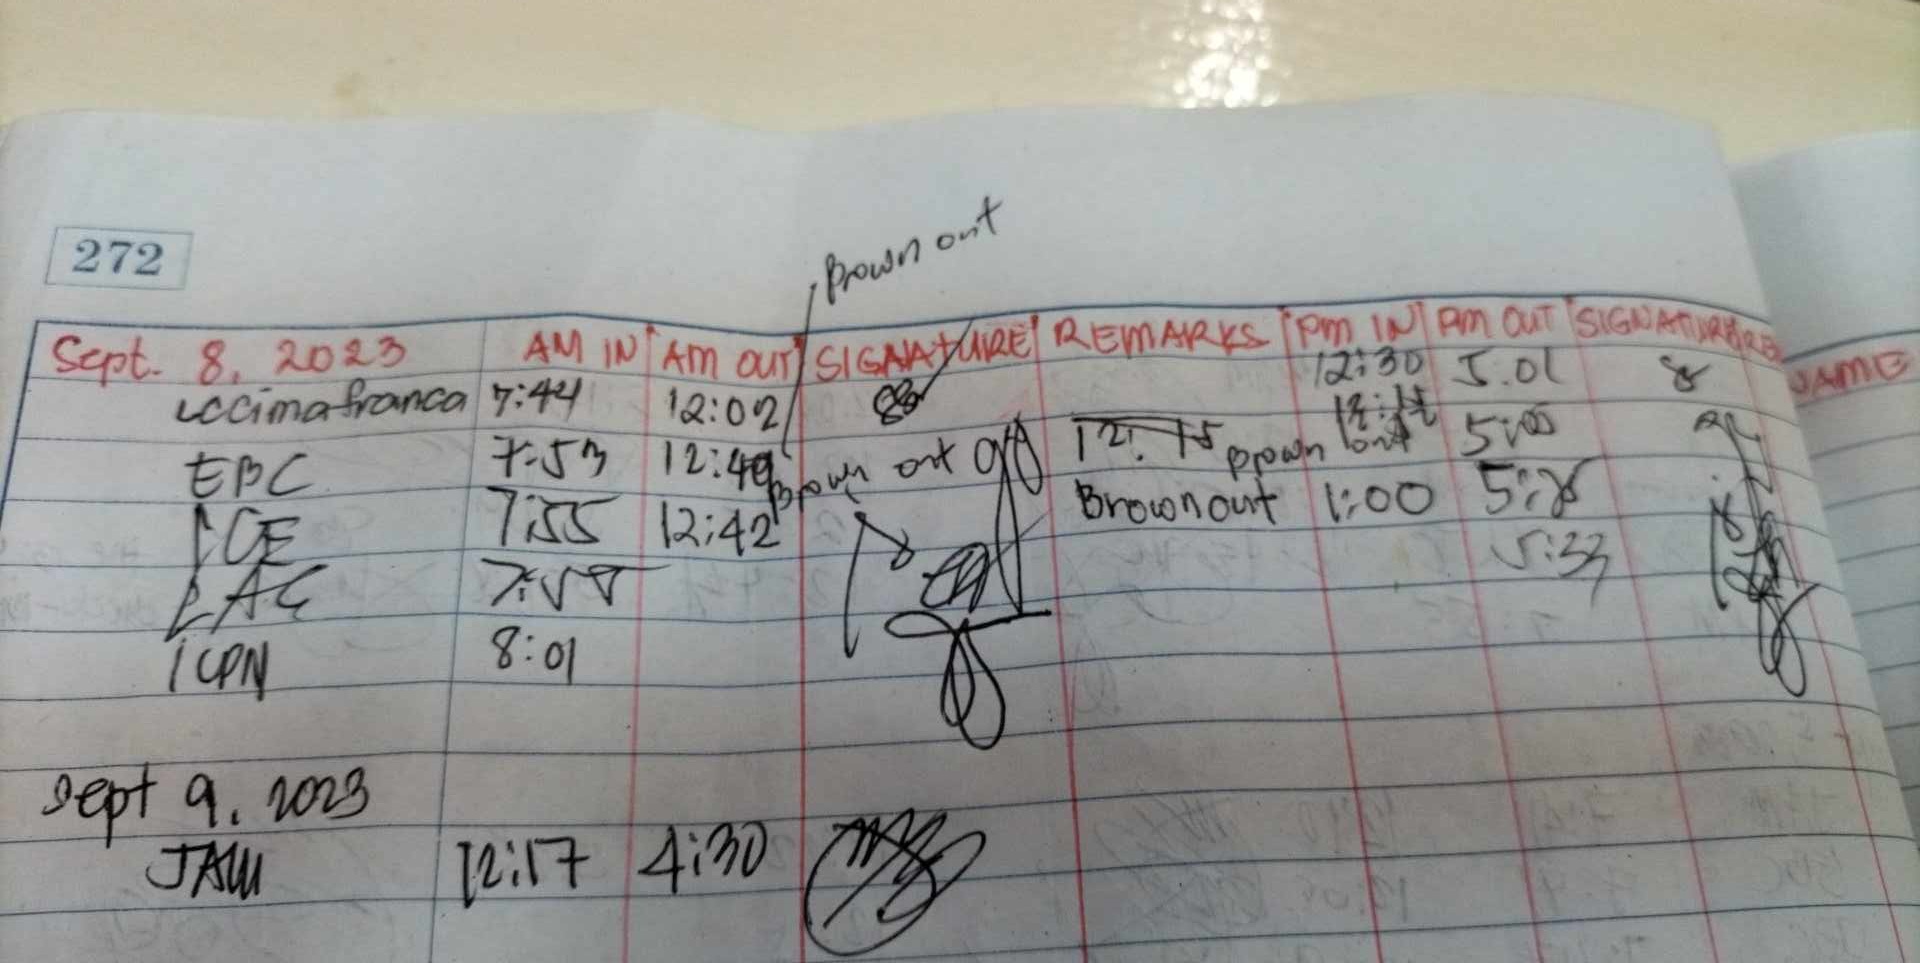 Brown out
272
Sept. 8, 2023 AM IN AM OUT SIGNATURE REMARKS PM IN PM OUT SIGNATURE RE NAME
Lccimafranca 7:44 12:02 12:30 5:01
EBC 7:53 12:49 Brown out 12:15 Brown out 5:00
7:55 12:42 Brown out 1:00
LAG 5:33
ICPN 8:01
Sept 9, 2023
JAW 12:17 4:30